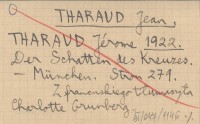 THARAUD Jean,
THARAUD Jérôme 1922.
Der Schatten des Kreuzes.
– München. Stron 271.
Z francuskiego tłumaczyła
Charlotte Grunberg